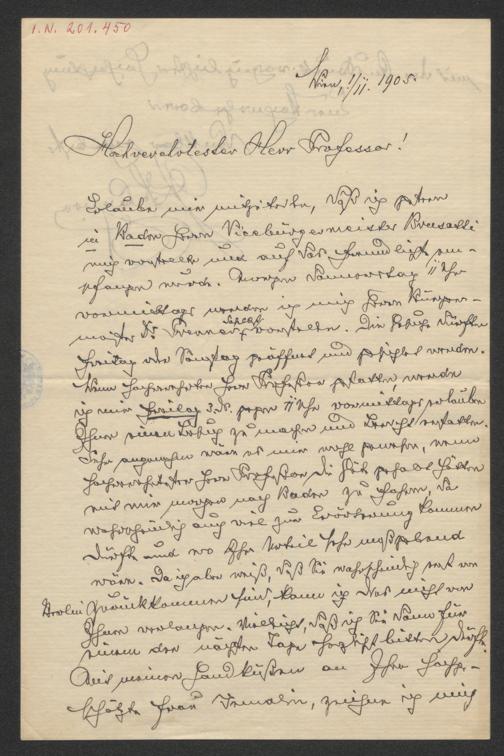 I. N. 201.450
Wien, 1/II. 1905.
Hochverehrtester Herr Professor!
Erlaube mir mitzuteilen, daß ich gestern
in Baden Herrn Vizebürgermeister Brusatti
mich vorstellte und auf das freundlichste em-
pfangen wurde. Morgen Donnerstag 11 Uhr
vormittags werde ich mich Herrn Bürger-
meister Dr. selbst vorstellen. Die Gesuche dürften
Freitag oder Samstag geöffnet und gesichtet werden.
Wenn hochverehrter Herr Professor gestatten, werde
ich mir Freitag 3. d. gegen 11 Uhr vormittags erlauben
Ihnen einen Besuch zu machen und Bericht erstatten.
Sehr angenehm wäre es mir wohl gewesen, wenn
hochverehrtester Herr Professor die Güte gehabt hätten
mit mir morgen nach Baden zu fahren, da
wahrscheinlich auch viel zur Erörterung kommen
dürfte und wo Ihr Urteil sehr maßgebend
wäre. Da ich aber weiß, daß Sie wahrscheinlich erst von
Berlin zurückkommen sind, kann ich das nicht von
Ihnen verlangen. Vielleicht, daß ich Sie dann für
einen der nächsten Tage höflichst bitten dürfte.
Mit meinen Handküssen an Ihre hochge-
schätzte Frau Gemalin, zeichne ich mich